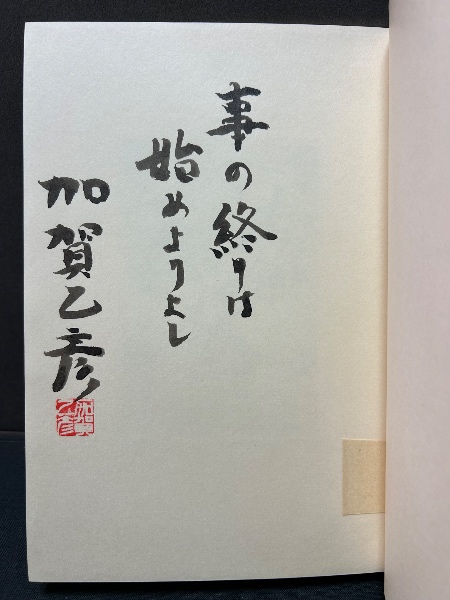 事の終りは
始めよりよし
加賀乙彦
加賀乙彦